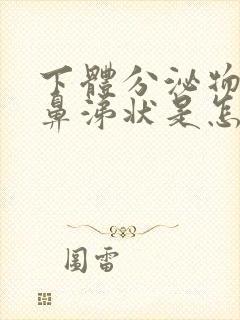 下體分泌物
鼻涕狀是怎
圖雷